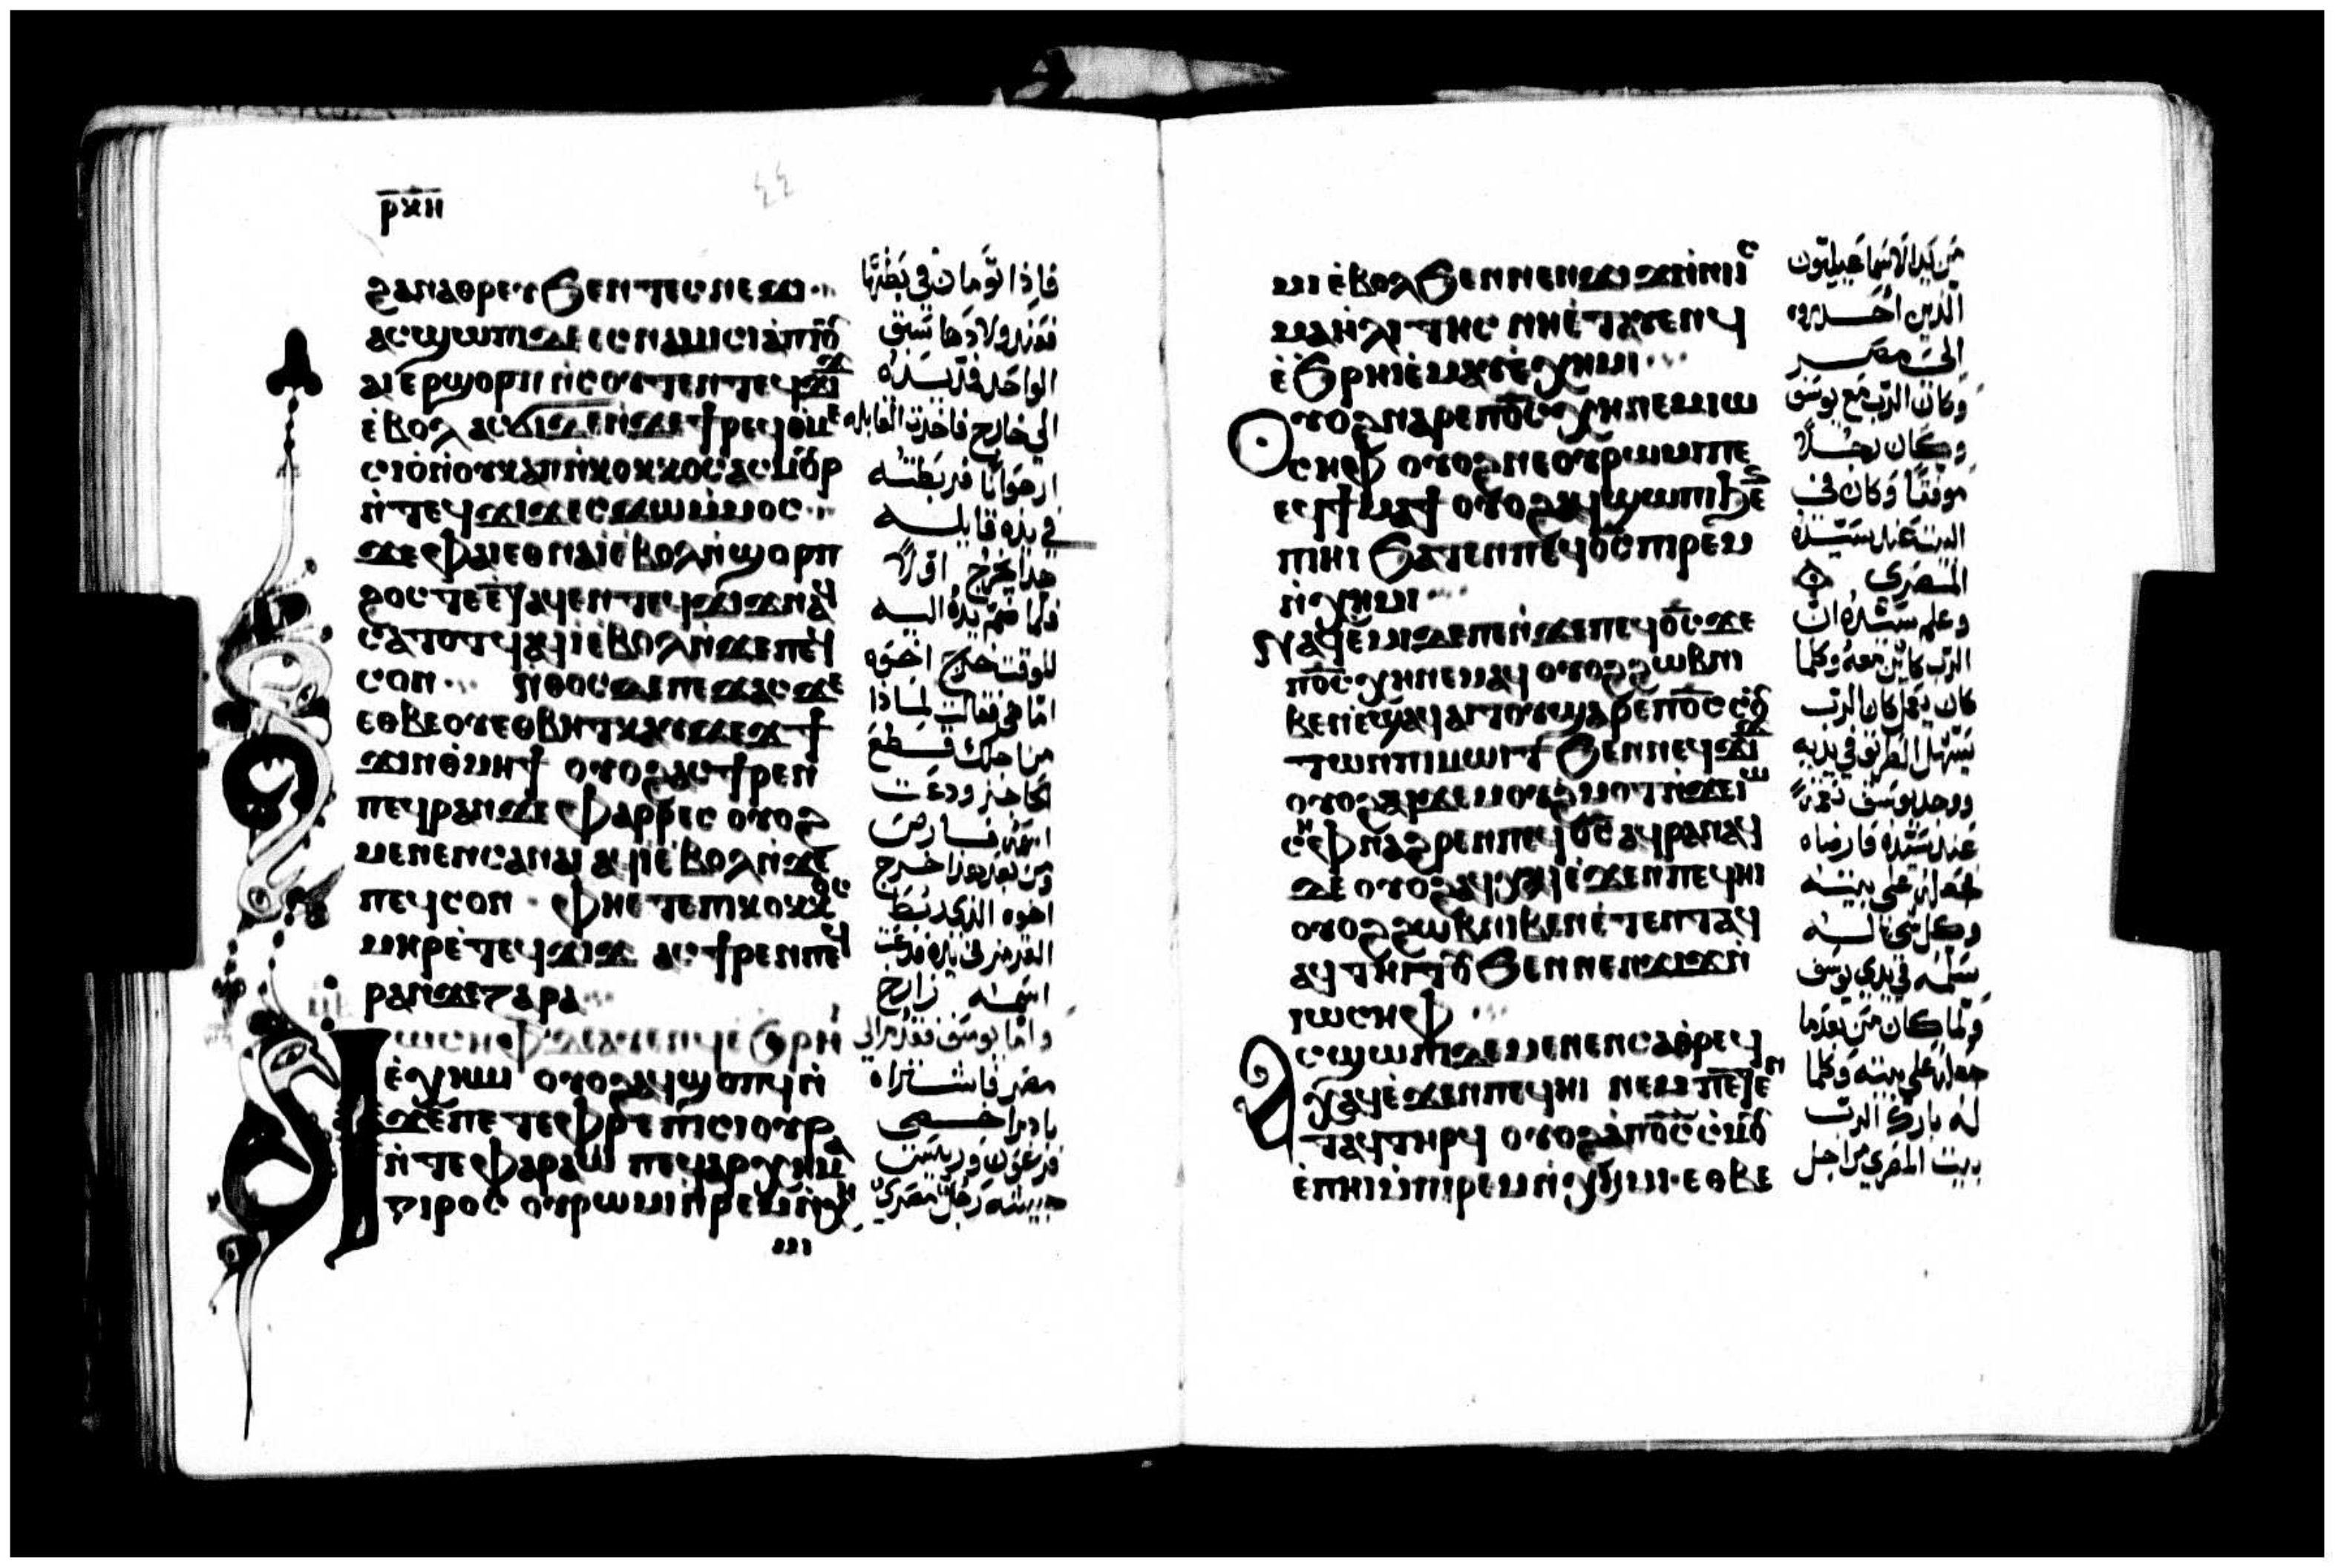 ⲣⲕⲏ
ϩⲁⲛⲁⲑⲣⲉⲩ ϧⲉⲛ ⲧⲉⲥⲛⲉϫⲓ
ⲁⲥϣⲱⲡⲓ ⲇⲉ ⲉⲥⲛⲁⲙⲓⲥⲓ ⲁⲡⲓⲟⲩ
ⲁⲓ ⲉⲣϣⲟⲣⲡ ⲛ̀ⲥⲟⲩⲧⲉⲛ ⲧⲉϥϫⲓϫ
ⲉ̀ⲃⲟⲗ
ⲛ̀ⲧⲉϥϫⲓϫ ⲉⲥϫⲱ ⲙ̀ⲙⲟⲥ
ϫⲉ ⲫⲁⲓ ⲉⲑⲛⲁⲓ̀ ⲉ̀ⲃⲟⲗ ⲛ̀ϣⲟⲣⲡ
ⲥⲁⲧⲟⲧϥ ⲁϥⲓ̀ ⲉ̀ⲃⲟⲗ ⲛ̀ϫⲉ ⲡⲉϥ
ⲥⲟⲛ ⲛ̀ⲑⲟⲥ ⲇⲉ ⲡⲉϫⲁⲥ ϫⲉ
ⲉⲑⲃⲉⲟⲩ ⲉⲑⲃⲏⲧⲕ
ⲟⲩⲟϩ ⲁⲥϯⲣⲉⲛ
ⲡⲉϥⲣⲁⲛ ϫⲉ ⲫⲁⲣⲣⲉⲥ ⲟⲩⲟϩ
ⲙⲉⲛⲉⲛⲥⲁ ⲛⲁⲓ ⲁϥⲓ̀ ⲉ̀ⲃⲟⲗ ⲛ̀ϫⲉ
ⲡⲉϥⲥⲟⲛ ⲫⲏⲉⲧⲉ ⲡⲓⲕⲟⲕⲕⲟⲥ
ⲧⲉϥϫⲓϫ ⲁⲥϯⲣⲉⲛ ⲡⲉϥ
ⲣⲁⲛ ϫⲉ ⲍⲁⲣⲁ
ⲓⲱⲥⲏⲫ ⲇⲉ ⲁⲩⲉⲛϥ ⲉ̀ϧⲣⲏⲓ
ⲉ̀ⲭⲏⲙⲓ ⲟⲩⲟϩ ⲁϥϣⲟⲡϥ ⲛ̀
ϫⲉ ⲡⲉⲧⲉⲫⲣⲉ ⲡⲓⲥⲓⲟⲩⲣ
ⲛ̀ⲧⲉ ⲫⲁⲣⲁⲱ ⲡⲉϥⲁⲣⲭⲏⲙⲁ
ⲅⲓⲣⲟⲥ ⲟⲩⲣⲱⲙⲓ ⲛ̀ⲣⲉⲙⲛ̀ⲭⲏ
ⲙⲓ
فاذا تومان في بطنها
فعند ولادها سبق
الواحد فمد يده
الى خارج فاخذت القابله
ارجوانا فربطته
في يده قايله
هذا يخرج اولا
فلما ضم يده اليه
للوقت خرج اخوه
اما هي فقالت لماذا
من اجلك قطع
اسمه فارص
ومن بعد هذا خرج
اخوه الذي ربط
القرمز في يده فدعت
اسمه زارح
واما يوسف فقدم الى
مصر فاشتراه
بادبرا خصي
فرعون وريس
جيشه رجل مصري
ⲙⲓ ⲉ̀ⲃⲟⲗ ϧⲉⲛ ⲛⲉⲛϫⲓϫ ⲛ̀ⲛⲓⲓⲥ
ⲙⲁⲏⲗⲓⲧⲏⲥ ⲛⲏⲉ̀ⲧⲁⲩⲉⲛϥ
ⲉ̀ϧⲣⲏⲓ ⲉ̀ⲙⲁⲩ ⲉ̀ⲭⲏⲙⲓ
ⲟⲩⲟϩ ⲛⲁⲣⲉ ⲡⲟ̅ⲥ̅ ⲭⲏ ⲛⲉⲙ ⲓⲱ
ⲥⲏⲫ ⲟⲩⲟϩ ⲛⲉ ⲟⲩⲣⲱⲙⲓ ⲡⲉ
ⲉϥϯⲙⲁϯ ⲟⲩⲟϩ ⲁϥϣⲱⲡⲓ ϧⲉⲛ
ⲡⲏⲓ ϧⲁⲧⲉⲛ ⲡⲉϥⲟ̅ⲥ̅ ⲡⲓⲣⲉⲙ
ⲛ̀ⲭⲏⲙⲓ
ⲛⲁϥⲉ̀ⲙⲓ ⲇⲉ ⲡⲉ ⲛ̀ϫⲉ ⲡⲉϥⲟ̅ⲥ̅ ϫⲉ
ⲡⲟ̅ⲥ̅ ⲭⲏ ⲛⲉⲙⲁϥ ⲟⲩⲟϩ ϩⲱⲃ ⲛⲓ
ⲃⲉⲛ ⲉ̀ϣⲁϥⲁⲓⲧⲟⲩ ϣⲁⲣⲉ ⲡⲟ̅ⲥ̅ ⲥⲟⲩ
ⲧⲱⲛ ⲡⲓⲙⲱⲓⲧ ϧⲉⲛ ⲛⲉϥϫⲓϫ
ⲟⲩⲟϩ ⲁϥϫⲉⲙ ⲟⲩϩⲙⲟⲧ ⲛ̀ϫⲉ ⲓⲱ
ⲥⲏⲫ ⲛⲁϩⲣⲉⲛ ⲡⲉϥⲟ̅ⲥ̅ ⲁϥⲣⲁⲛⲁϥ
ⲇⲉ ⲟⲩⲟϩ ⲁϥⲭⲁϥ ⲉ̀ϫⲉⲛ ⲡⲉϥⲏⲓ
ⲟⲩⲟϩ ϩⲱⲃ ⲛⲓⲃⲉⲛ ⲉ̀ⲧⲉⲛⲧⲁϥ
ⲁϥⲧⲏⲓⲧⲟⲩ ϧⲉⲛ ⲛⲉⲛϫⲓϫ ⲛ̀
ⲓⲱⲥⲏⲫ
ⲁⲥϣⲱⲡⲓ ⲇⲉ ⲙⲉⲛⲉⲛⲥⲁ ⲑⲣⲉϥ
ⲭⲁϥ ⲉ̀ϫⲉⲛ ⲡⲉϥⲏⲓ ⲛⲉⲙ ⲡⲉⲧⲉⲛ
ⲧⲁϥ ⲧⲏⲣϥ ⲟⲩⲟϩ ⲁ̀ ⲡⲟ̅ⲥ̅ ⲥ̀ⲙⲟⲩ
ⲉ̀ⲡⲏⲓ ⲙ̀ⲡⲓⲣⲉⲙⲛ̀ⲭⲏⲙⲓ ⲉⲑⲃⲉ
من يد الاسماعيليون
الذين احدروه
الى مصر
وكان الرب مع يوسف
وكان رجلا
موفقا وكان في
البيت عند سيده
المصري
وعلم سيده ان
الرب كاين معه وكلما
كان يفعل كان الرب
يسهل الطريق في يديه
ووجد يوسف نعمة
عند سيده فارضاه
جعله على بيته
وكل شي له
سلمه في يدي يوسف
ولما كان من بعد ما
جعله على بيته وكلما
له بارك الرب
بيت المصري من اجل